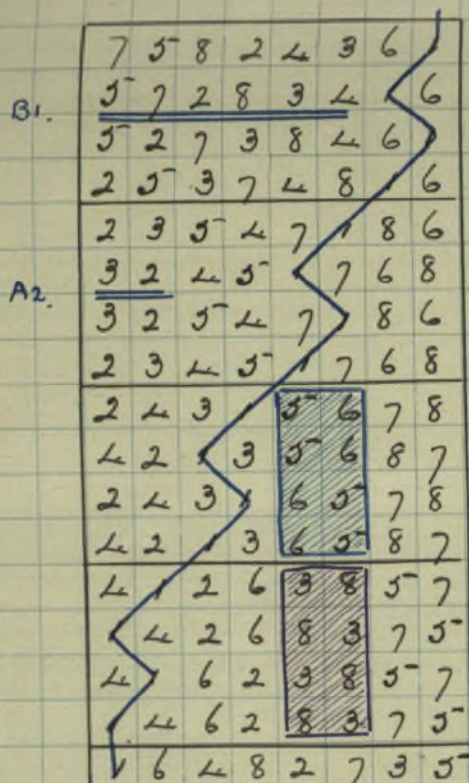 7 5 8 2 4 3 6 1
B1. 5 7 2 8 3 4 1 6
5 2 7 3 8 4 6 1
2 5 3 7 4 8 1 6
2 3 5 4 7 1 8 6
A2. 3 2 4 5 1 7 6 8
3 2 5 4 7 1 8 6
2 3 4 5 1 7 6 8
2 4 3 1 5 6 7 8
4 2 1 3 5 6 8 7
2 4 3 1 6 5 7 8
4 2 1 3 6 5 8 7
4 1 2 6 3 8 5 7
1 4 2 6 8 3 7 5
4 1 6 2 3 8 5 7
1 4 6 2 8 3 7 5
1 6 4 8 2 7 3 5